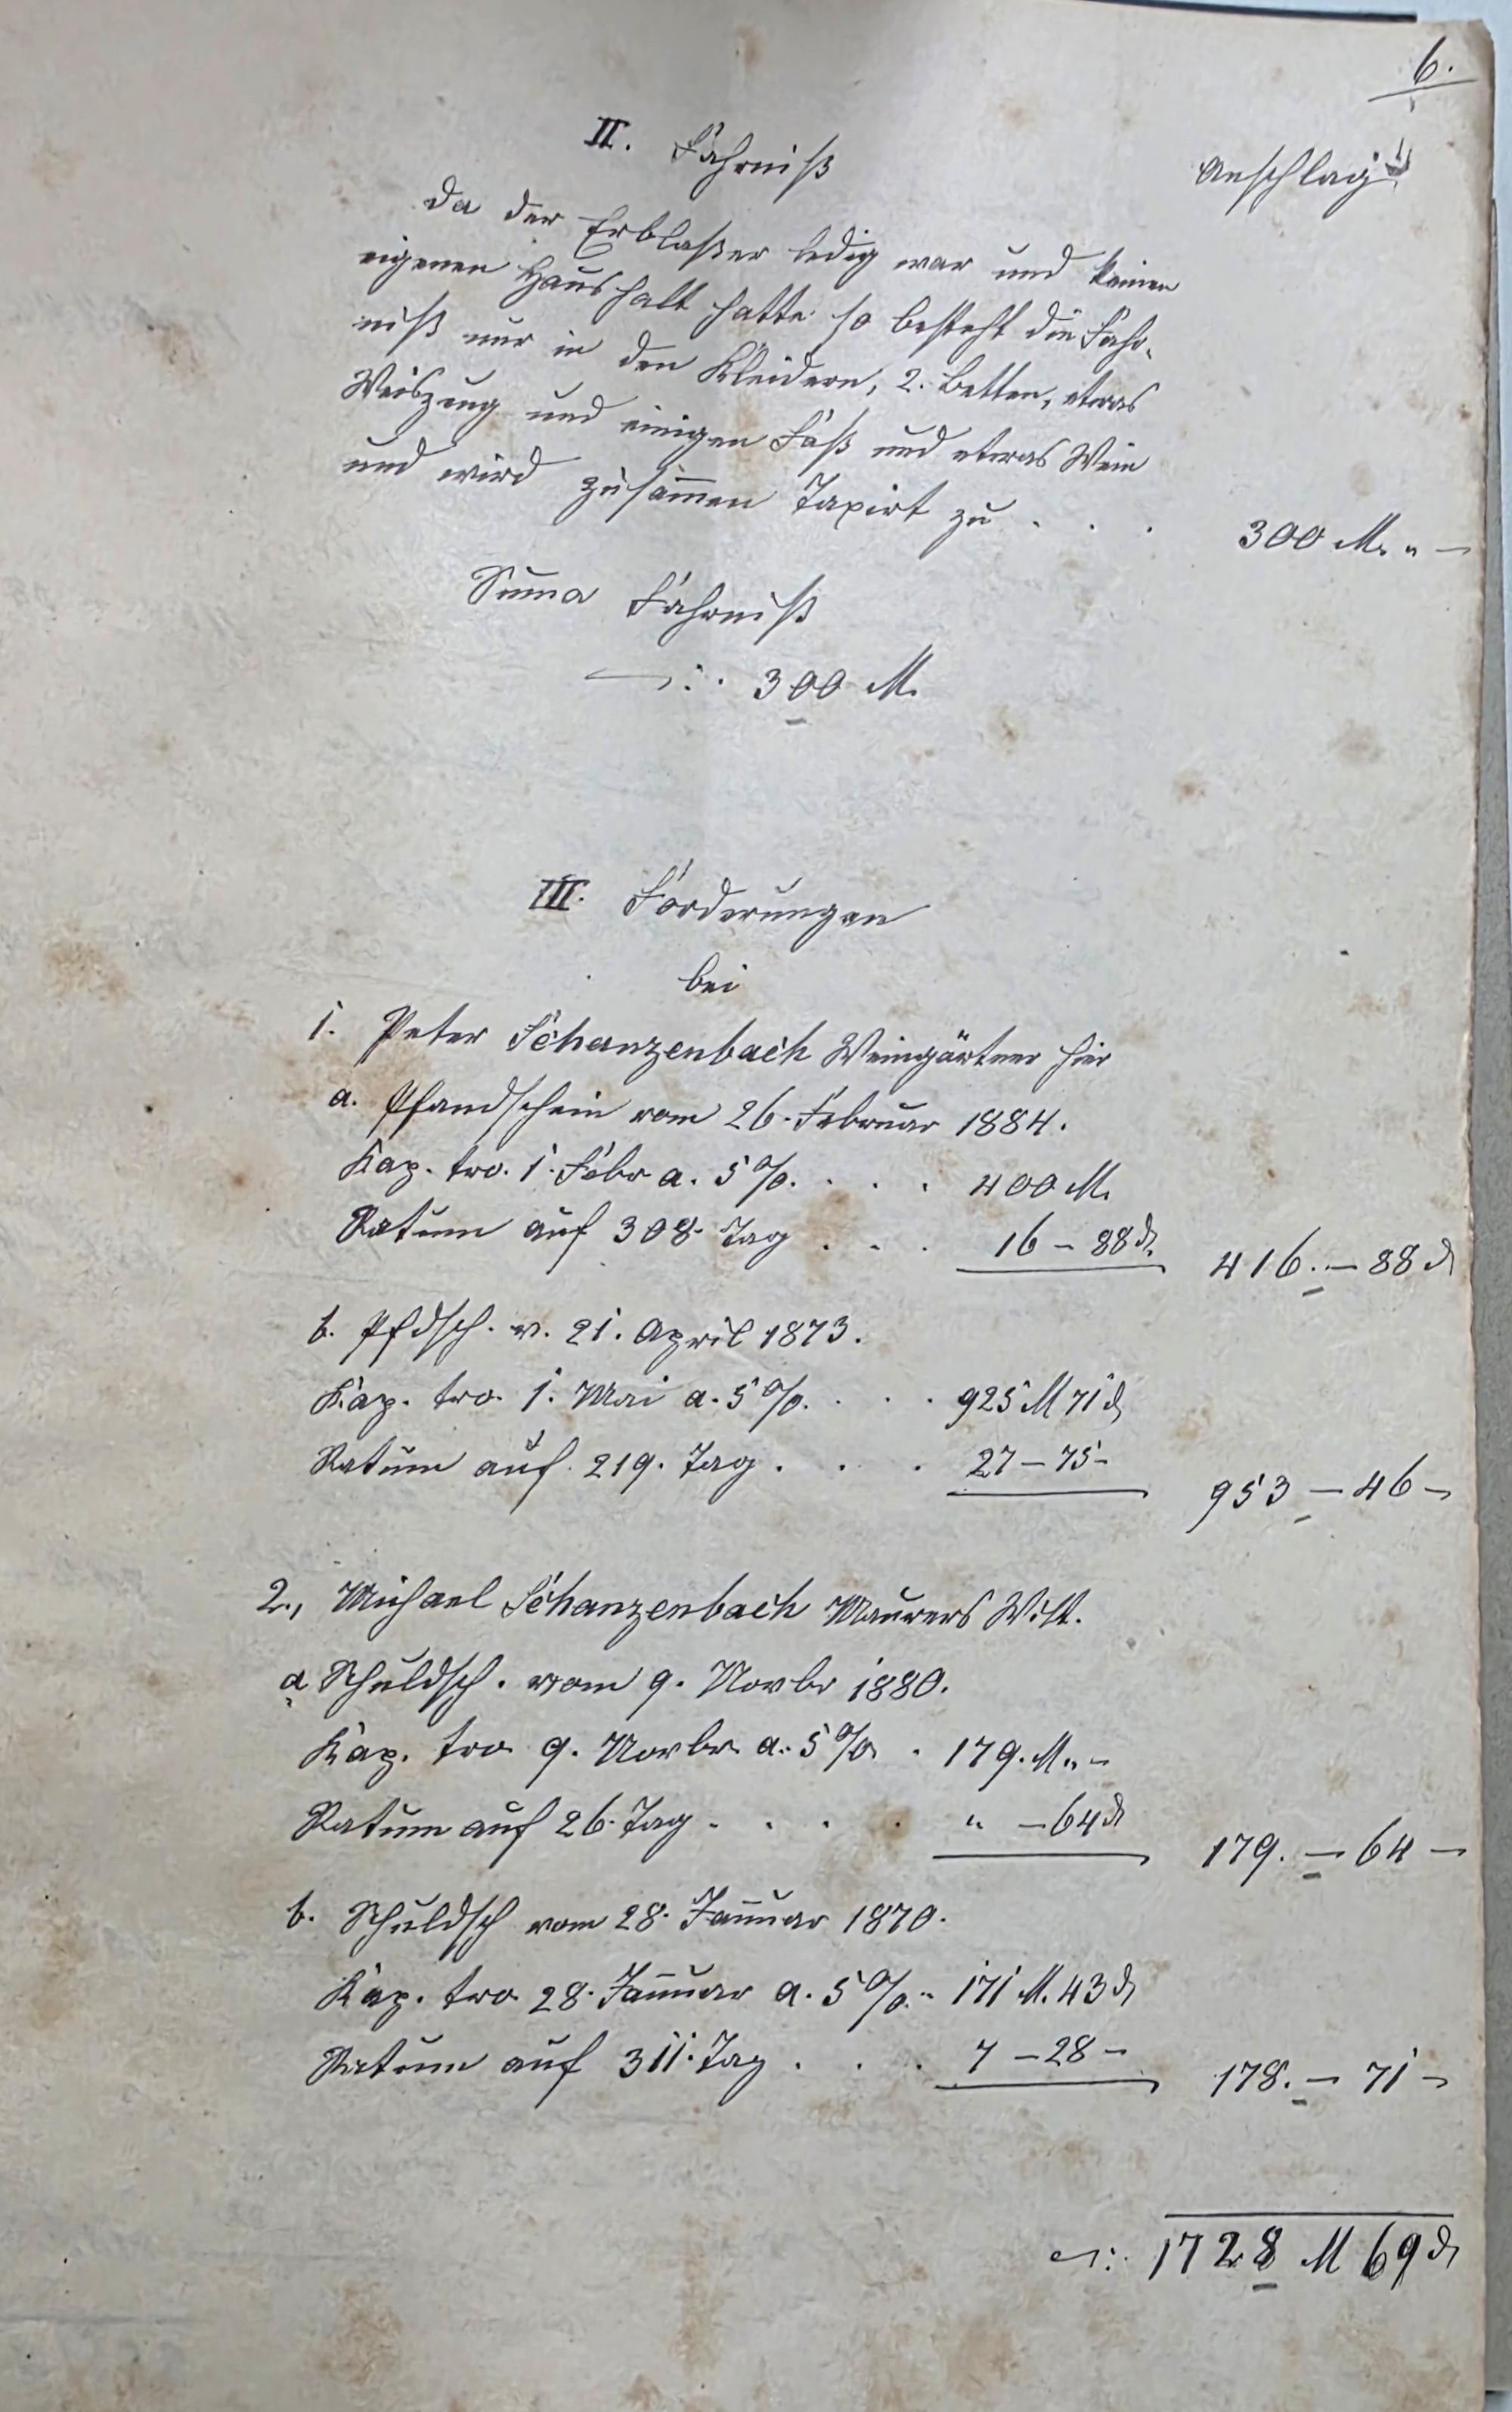 6.
II. Fahrniß
Anschlag
Da der Erblaßer ledig war und keinen
eigenen Haushalt hatte so besteht die Fahr-
niß nur in den Kleidern, 2. Betten, etwas
Weiszeug und einigen Faß und etwas Wein
und wird zusammen Taxirt zu . . . 300 M. " —
Suma Fahrniß
—:. 300 M.
III. Forderungen
bei
1. Peter Schanzenbach Weingärtner hier
a. Pfandschein vom 26. Februar 1884.
Kap. tro. 1. Febr a. 5 %. . . . 400 M.
Ratum auf 308. Tag . . . 16 – 88 ₰. 416. — 88 ₰
b. Pfdsch. v. 21. April 1873.
Kap. tro. 1. Mai a. 5 %. . . . 925 M 71 ₰
Ratum auf 219. Tag . . . 27 – 75 – 953 — 46 –
2., Michael Schanzenbach Maurers Witt.
a Schuldsch. vom 9. Novbr 1880.
Kap. tro 9. Novbr. a. 5 % . 179. M. " –
Ratum auf 26. Tag . . . . " – 64 ₰ 179. — 64 —
b. Schuldsch vom 28. Januar 1870.
Kap. tro 28. Januar a. 5 %. " 171 M. 43 ₰
Ratum auf 311. Tag . . . 7 – 28 – 178. — 71 –
—:. 1728 M 69 ₰